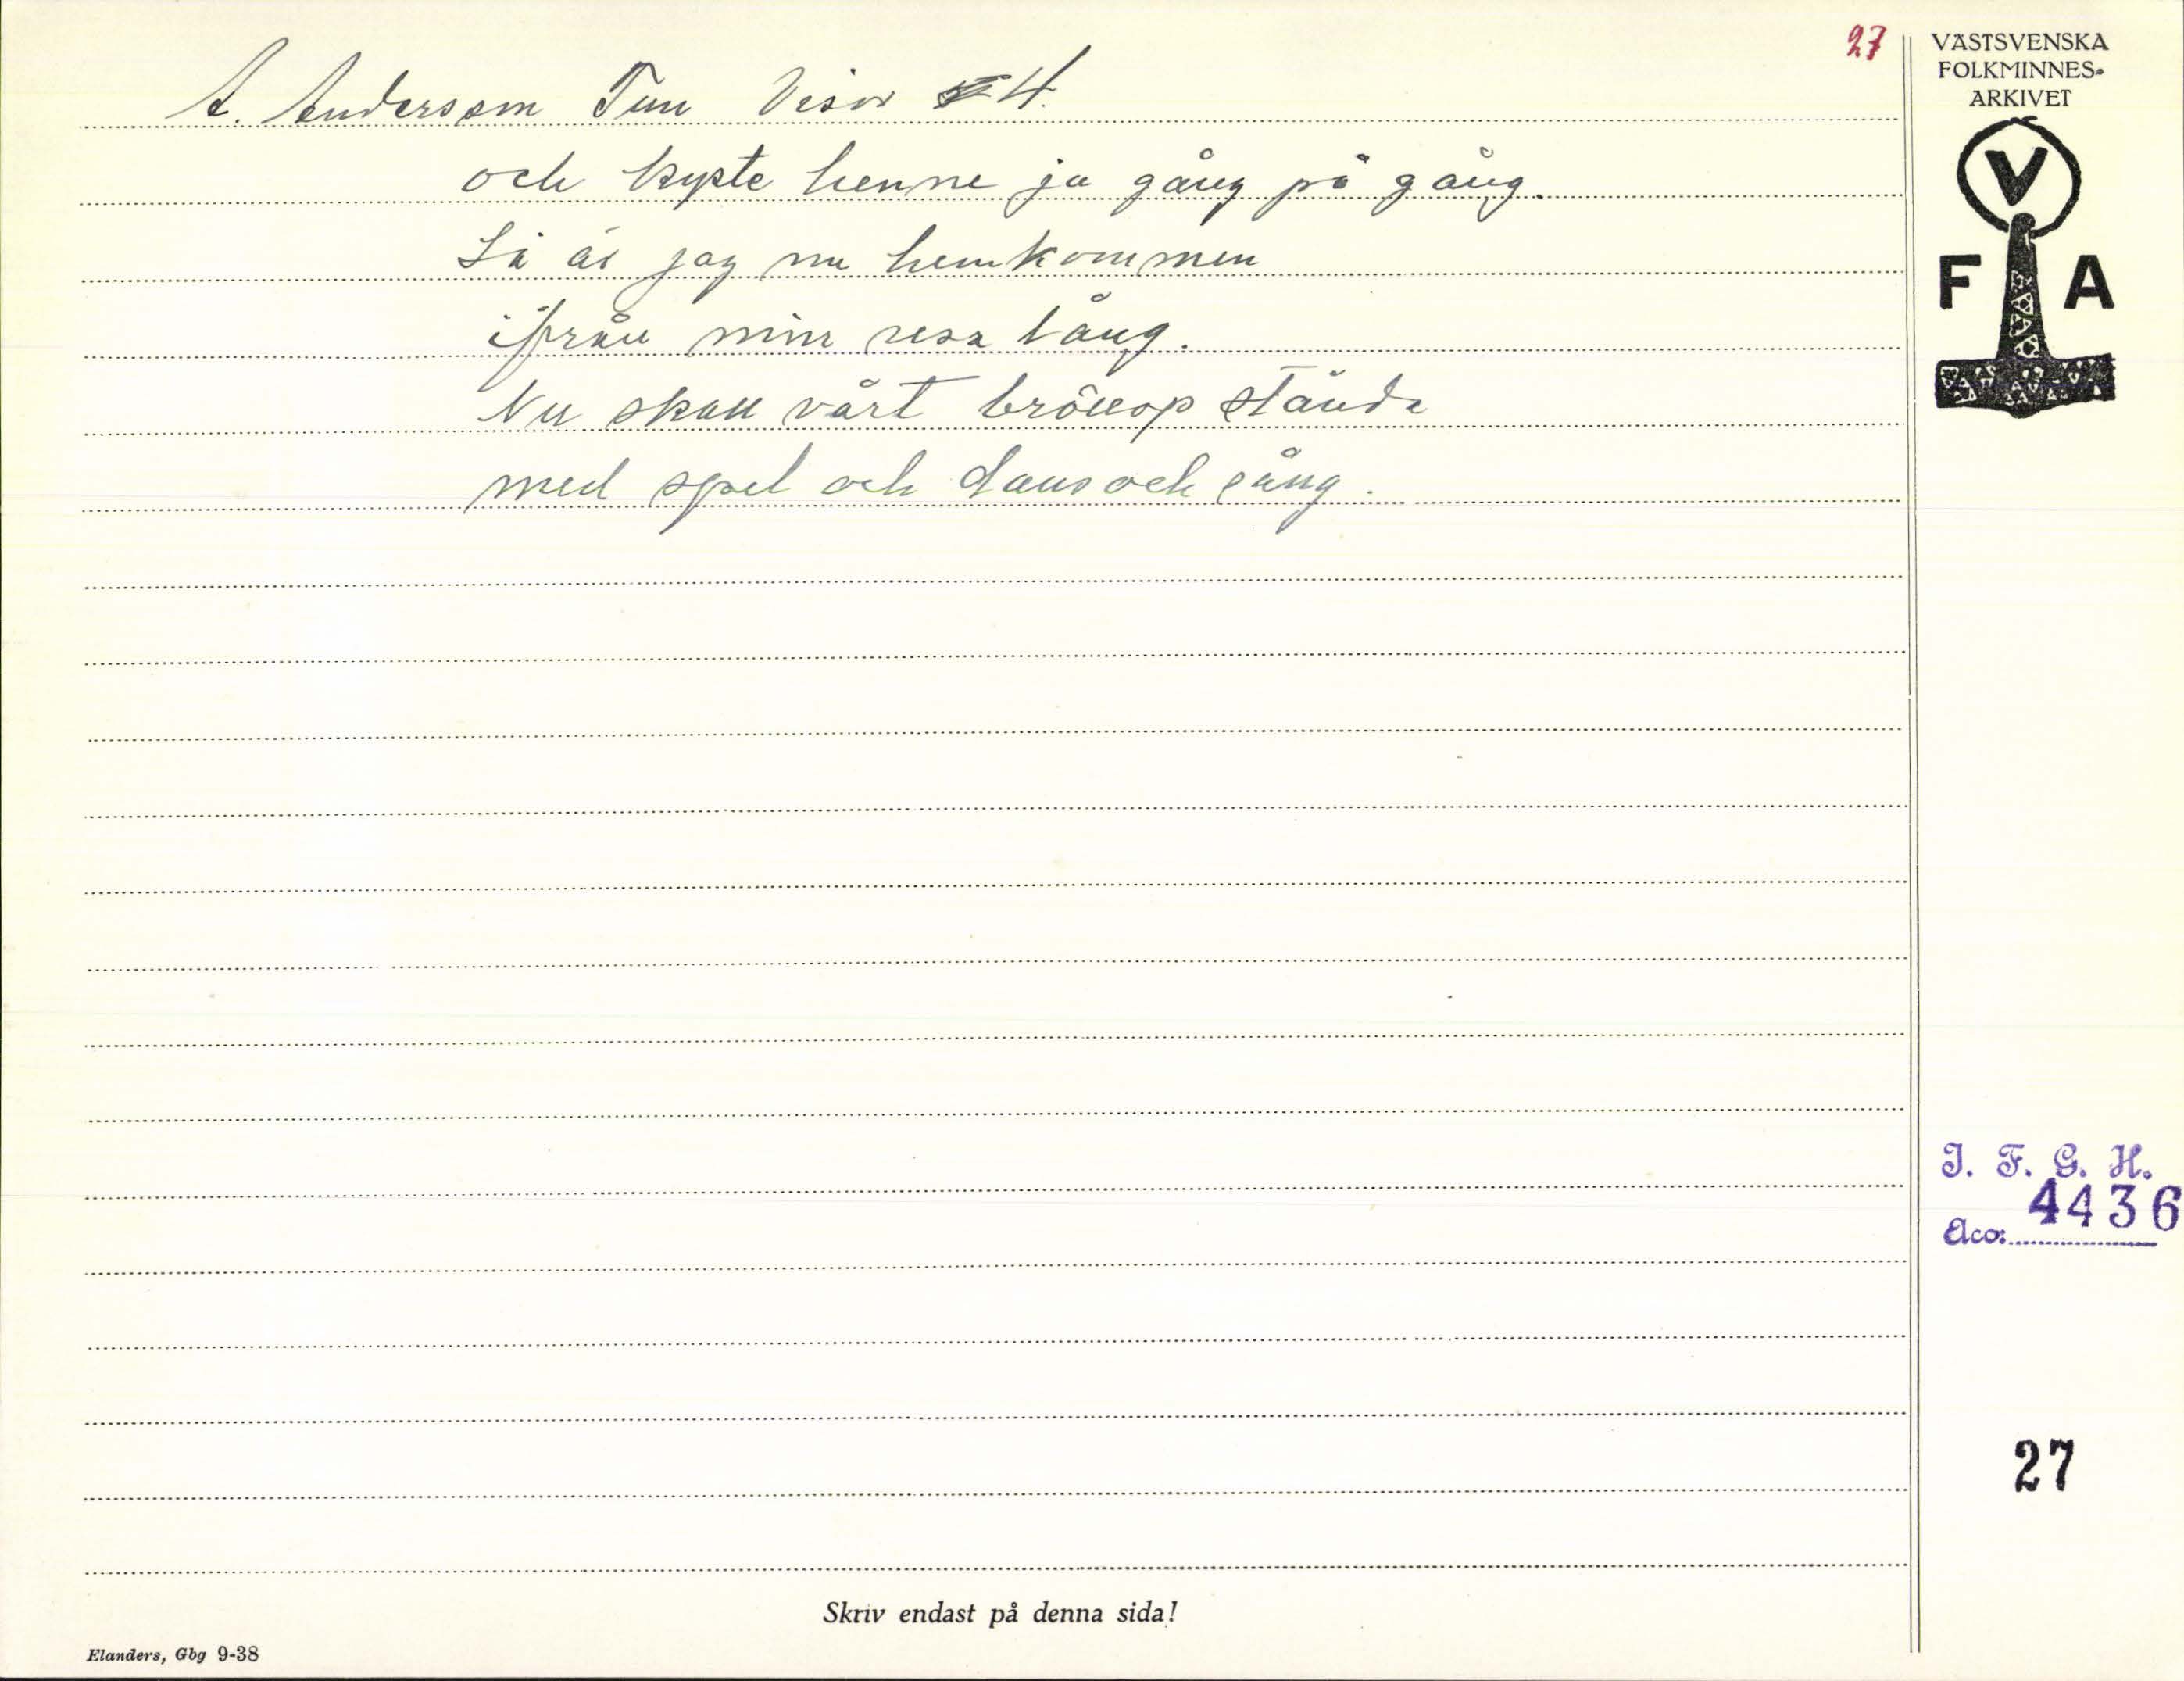 27
VÄSTSVENSKA
FOLKMINNES-
ARKIVET
V
F A
A. Andersson Tun Visor 4.
och kysste henne ja gång på gång.
Så är jag nu hemkommen
ifrån min resa lång.
Nu skall vårt bröllop stånda
med spel och dans och sång.
I. F. G. H.
Acc. 4436
27
Skriv endast på denna sida!
Elanders, Gbg 9-38